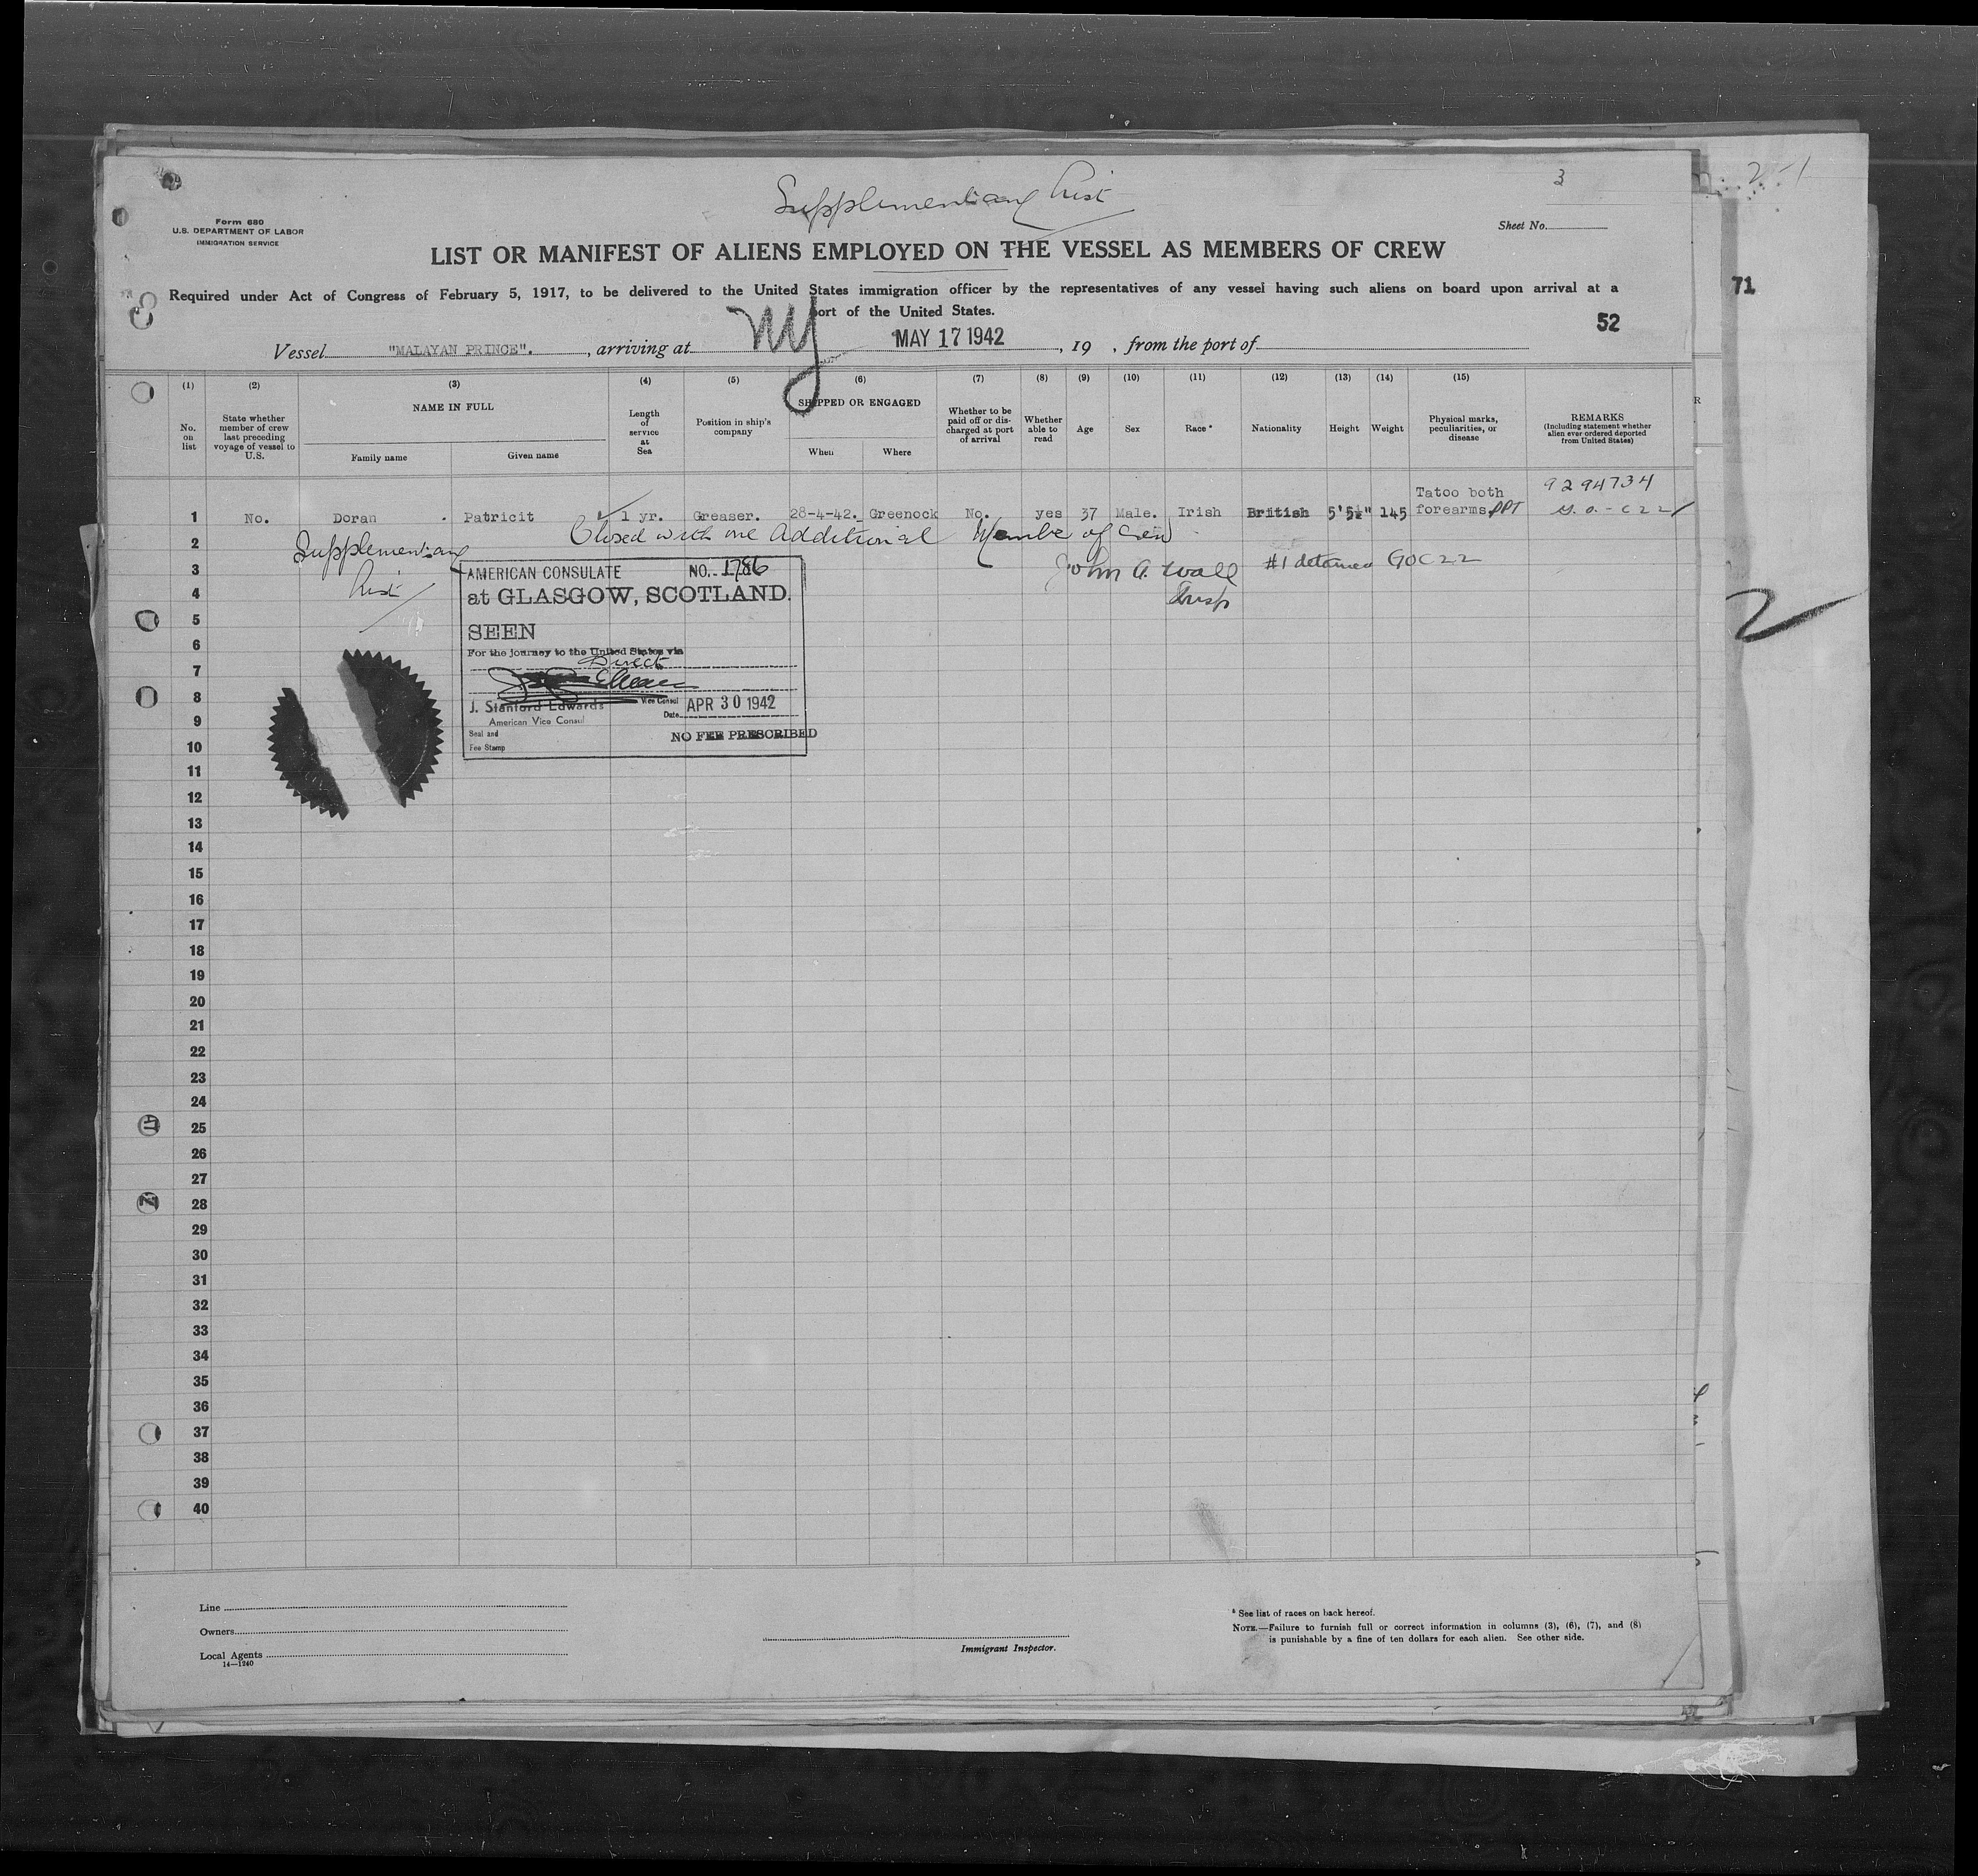 2-1
Supplementary List
3
Form 680
U.S. DEPARTMENT OF LABOR
IMMIGRATION SERVICE
Sheet No.
LIST OR MANIFEST OF ALIENS EMPLOYED ON THE VESSEL AS MEMBERS OF CREW
71
Required under Act of Congress of February 5, 1917, to be delivered to the United States immigration officer by the representatives of any vessel having such aliens on board upon arrival at a
port of the United States.
52
Vessel "MALAYAN PRINCE". , arriving at NY MAY 17 1942 , 19 , from the port of
(1) (2) (3) (4) (5) (6) (7) (8) (9) (10) (11) (12) (13) (14) (15)
No. on list
State whether member of crew last preceding voyage of vessel to U.S.
NAME IN FULL
Family name Given name
Length of service at Sea
Position in ship's company
SHIPPED OR ENGAGED
When Where
Whether to be paid off or discharged at port of arrival
Whether able to read
Age Sex Race* Nationality Height Weight
Physical marks, peculiarities, or disease
REMARKS
(Including statement whether alien ever ordered deported from United States)
R
Tatoo both 9294734
1 No. Doran . Patricit 1 yr. Greaser. 28-4-42. Greenock No. yes 37 Male. Irish British 5'5½" 145 forearms, PPT
2 Closed with one Additional Member of Crew
Supplementary
3 John A. Wall #1 detained GOC22
4 List Insp
AMERICAN CONSULATE NO. 1786
at GLASGOW, SCOTLAND.
SEEN
For the journey to the United States via
Direct
J. Stanford Edwards Vice Consul
American Vice Consul Date APR 30 1942
Seal and
Fee Stamp NO FEE PRESCRIBED
2
5
6
7
8
9
10
11
12
13
14
15
16
17
18
19
20
21
22
23
24
25
26
27
28
29
30
31
32
33
34
35
36
37
38
39
40
Line
Owners
Local Agents
14—1240
Immigrant Inspector.
* See list of races on back hereof.
NOTE.—Failure to furnish full or correct information in columns (3), (6), (7), and (8)
is punishable by a fine of ten dollars for each alien. See other side.